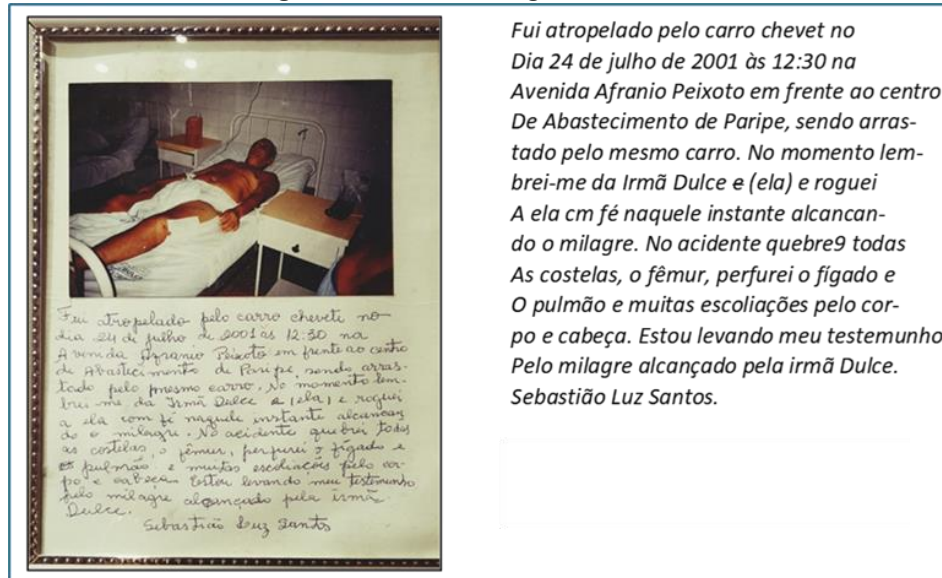 Fui atropelado pelo carro cheveti no
dia 24 de julho de 2001 às 12:30 na
Avenida Afranio Peixoto em frente ao centro
de Abastecimento de Paripe, sendo arras-
tado pelo mesmo carro. No momento lem-
brei-me da Irmã Dulce e (ela) e roguei
a ela com fé naquele instante alcancan
do o milagre. No acidente quebrei todas
as costelas, o fêmur, perfurei o fígado e
o pulmão e muitas escoliações pelo cor-
po e cabeça. Estou levando meu testemunho
pelo milagre alcançado pela irmã
Dulce.
Sebastião Luz Santos
Fui atropelado pelo carro chevet no
Dia 24 de julho de 2001 às 12:30 na
Avenida Afranio Peixoto em frente ao centro
De Abastecimento de Paripe, sendo arras-
tado pelo mesmo carro. No momento lem-
brei-me da Irmã Dulce e (ela) e roguei
A ela cm fé naquele instante alcancan-
do o milagre. No acidente quebre9 todas
As costelas, o fêmur, perfurei o fígado e
O pulmão e muitas escoliações pelo cor-
po e cabeça. Estou levando meu testemunho
Pelo milagre alcançado pela irmã Dulce.
Sebastião Luz Santos.